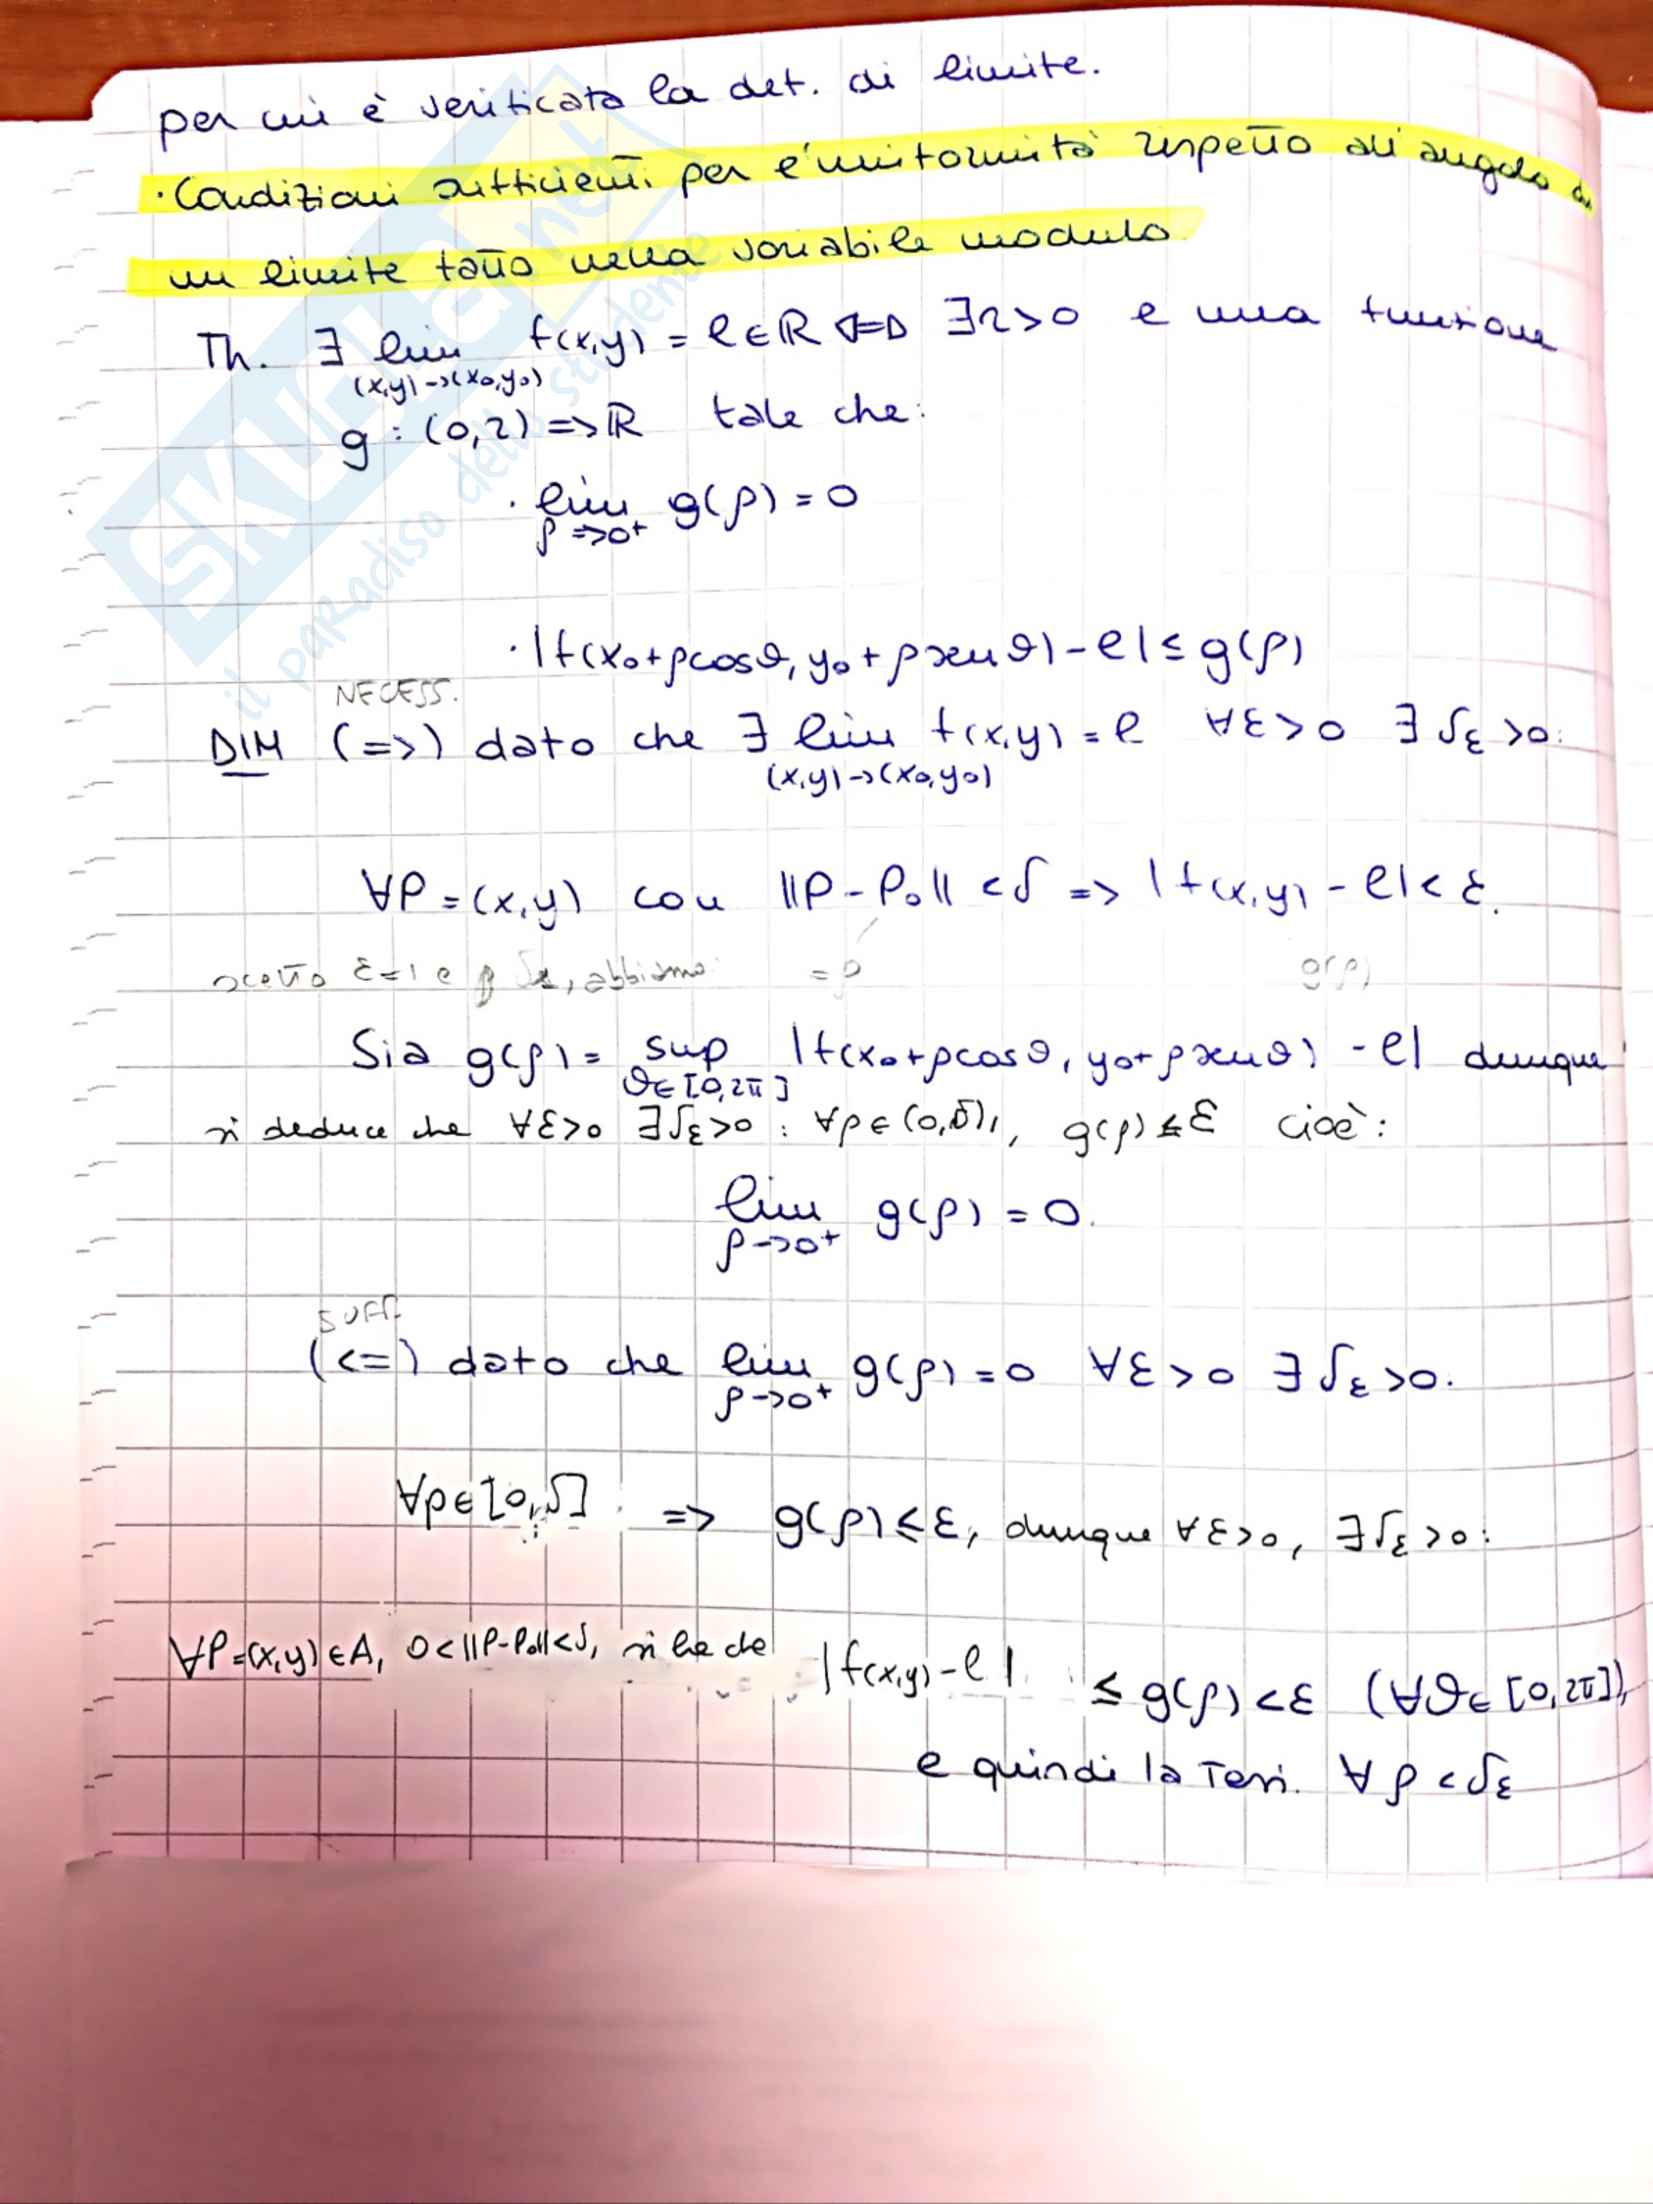 per cui è verificata la def. di limite.
· Condizioni sufficienti per l'uniformità rispetto all'angolo di
un limite fatto nella variabile modulo
Th. ∃ lim f(x,y) = l ∈ ℝ <=> ∃ r > 0 e una funzione
(x,y)->(x₀,y₀)
g : (0,r) => ℝ tale che:
· lim g(ρ) = 0
ρ => 0⁺
· |f(x₀+ρcosθ, y₀+ρsenθ) - l| ≤ g(ρ)
NECESS.
DIM (=>) dato che ∃ lim f(x,y) = l ∀ε>0 ∃ δε >0:
(x,y)->(x₀,y₀)
∀P=(x,y) con ||P-P₀|| < δ => |f(x,y) - l| < ε.
scelto ε=1 e δε, abbiamo: = ρ g(ρ)
Sia g(ρ) = sup |f(x₀+ρcosθ, y₀+ρsenθ) - l| dunque
θ∈[0,2π]
si deduce che ∀ε>0 ∃δε>0 : ∀ρ∈(0,δ), g(ρ) ≤ ε cioè:
lim g(ρ) = 0.
ρ->0⁺
SUFF.
(<=) dato che lim g(ρ) = 0 ∀ε>0 ∃ δε >0:
ρ->0⁺
∀ρ∈[0,δ] => g(ρ) ≤ ε, dunque ∀ε>0, ∃δε>0:
∀P=(x,y)∈A, 0<||P-P₀||<δ, si ha che |f(x,y)-l| ≤ g(ρ) < ε (∀θ∈[0,2π]),
e quindi la Tesi. ∀ρ<δε
SKUOLA.net
il paradiso dello studente